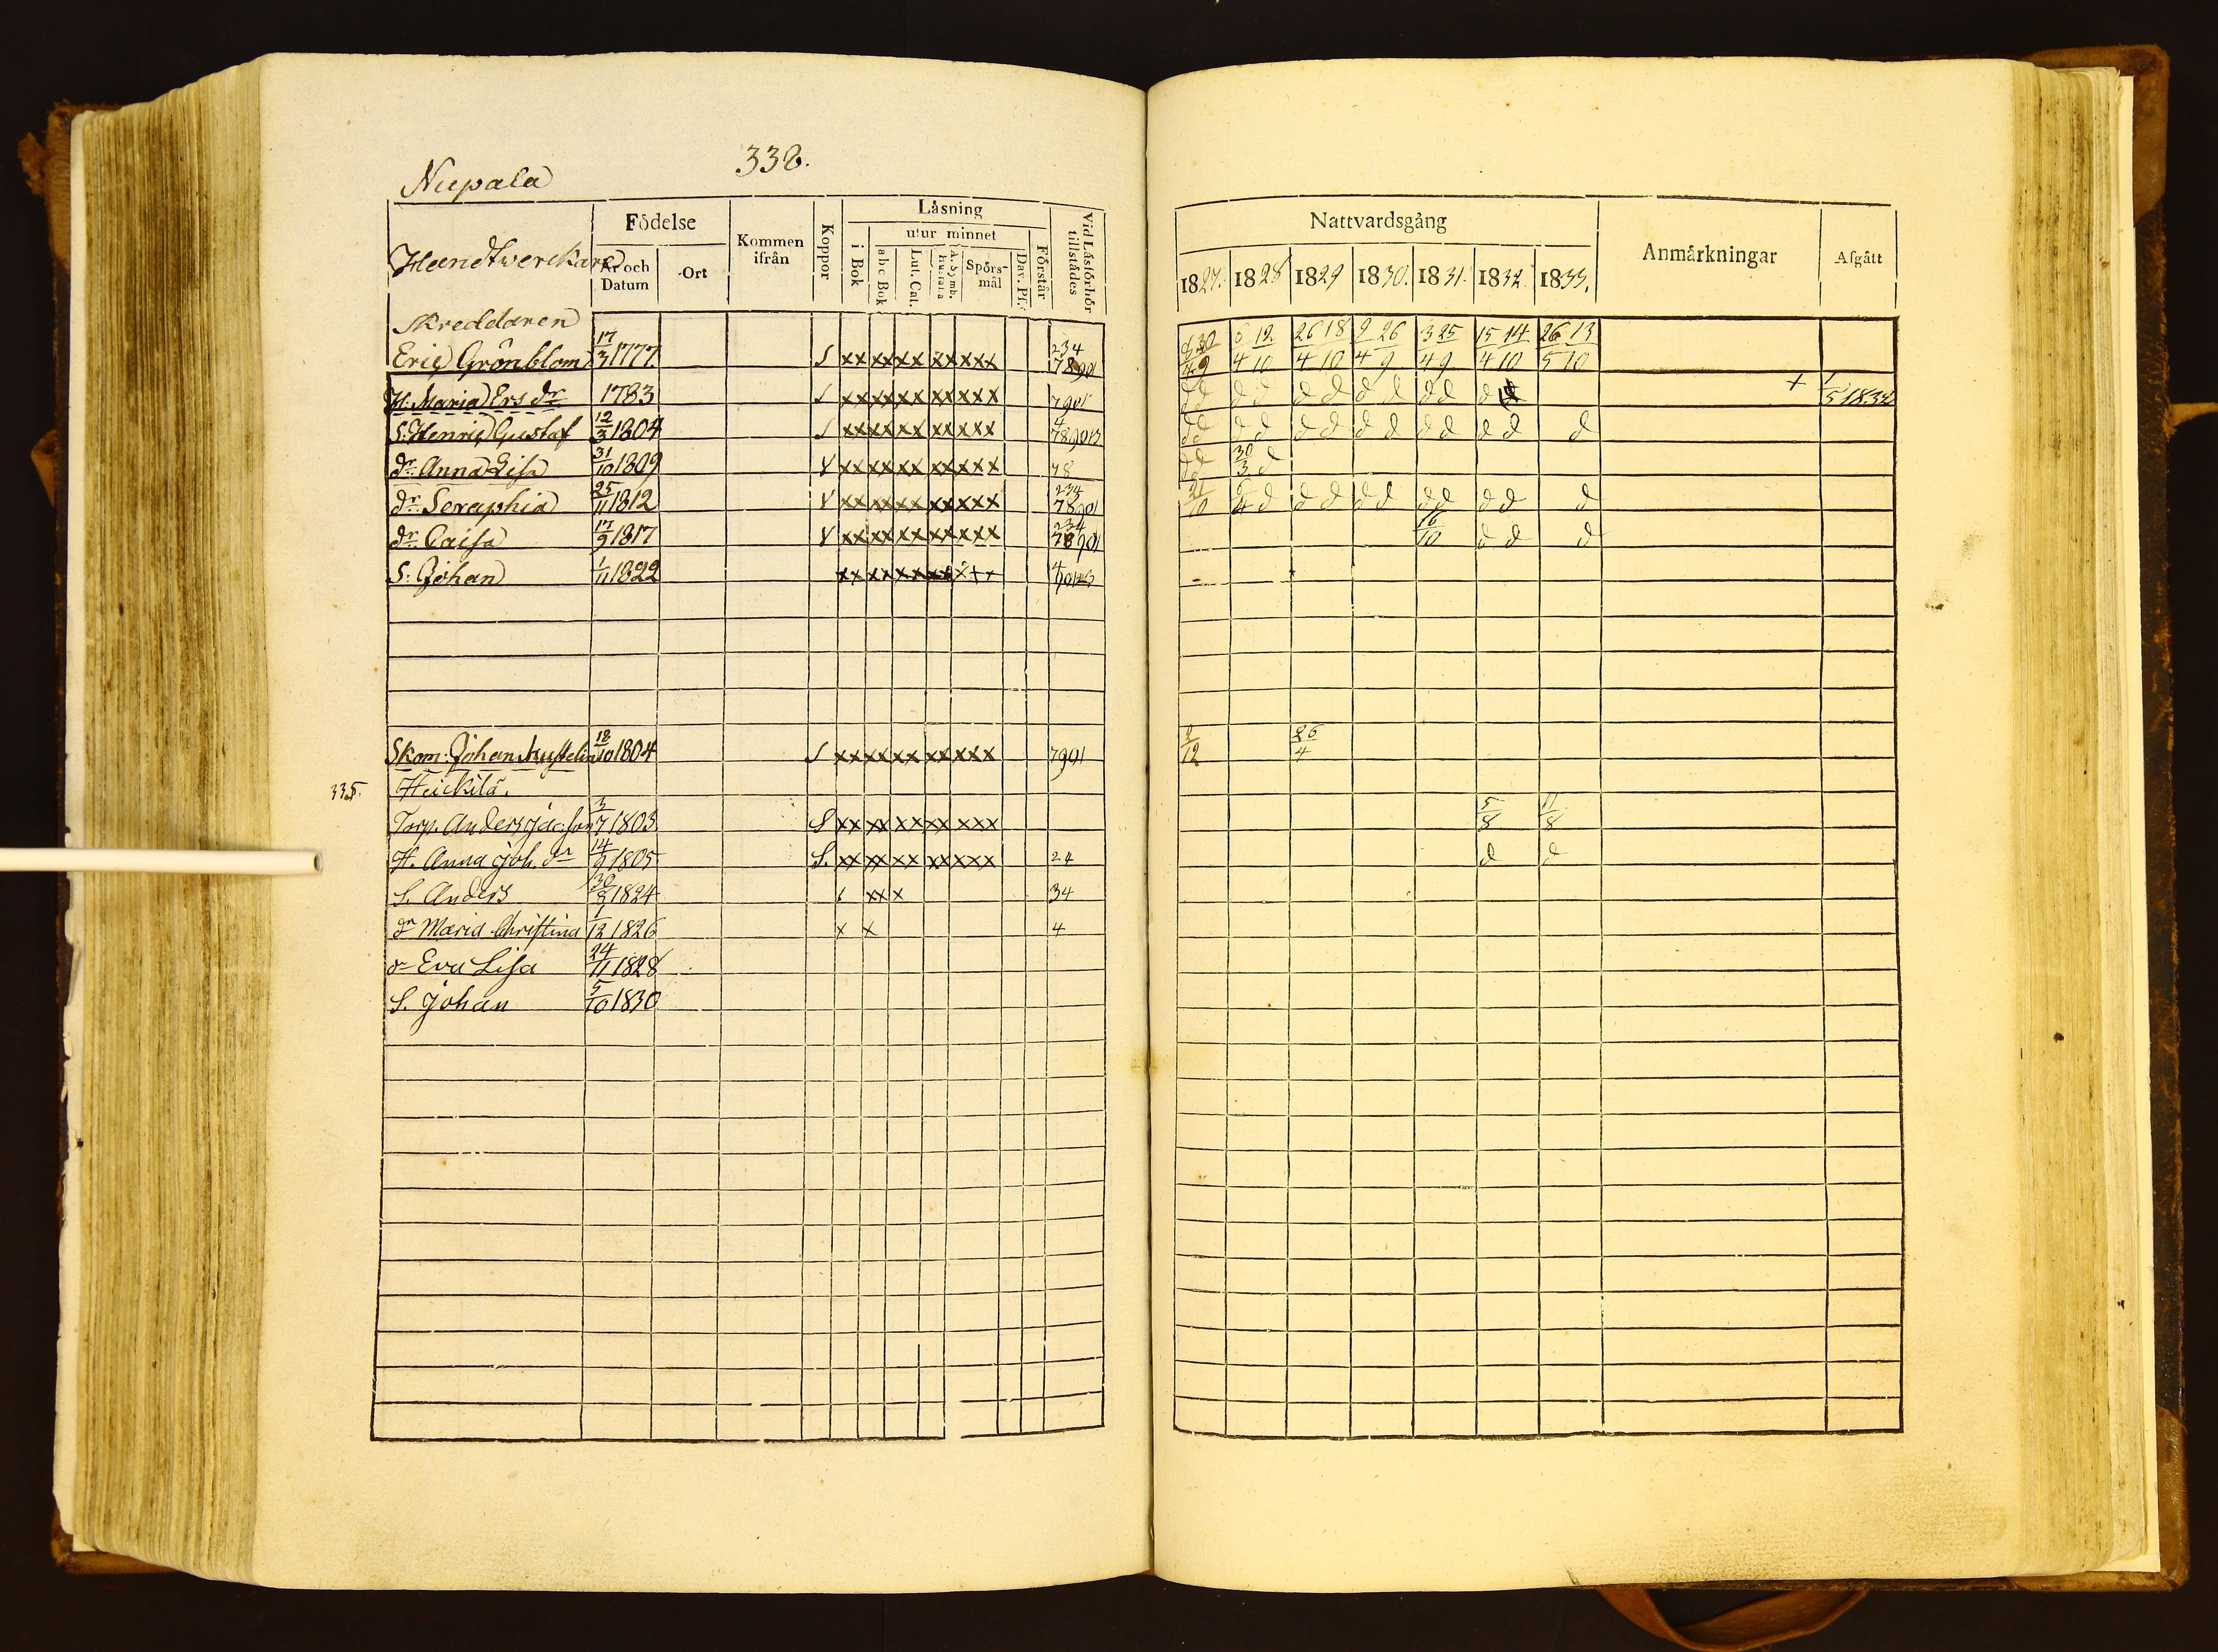 338.
Nupala
Handtwerckare
Födelse
År och Datum
Ort
Kommen ifrån
Koppor
Läsning
i Bok
utur minnet
abc Bok
Lut. Cat.
A. Symb. Hustafla
Spörsmål
Dav. Ps.
Förstår
Vid Läsförhör tillstädes
Nattvardsgång
1827. 1828 1829 1830. 1831. 1832 1833.
Anmärkningar
Afgått
Skreddaren
Eric Grönblom 17/3 1777. S xx xx xx xx xxx 234 78901 8/4 30/9 6/4 12/10 26/4 18/10 9/4 26/9 3/4 25/9 15/4 14/10 26/5 13/10
H: Maria Ers dr 1783 S xx xx xx xx xxx 7901 d d d d d d d d d d d + 1/5 1832
S: Henric Gustaf 12/3 1804 S xx xx xx xx xxx 4 789013 d d d d d d d d d d d d d
dr Anna Lisa 31/10 1809 V xx xx xx xx xxx 78 d d 30/3 d
dr Seraphia 25/11 1812 V xx xx xx xx xxx 234 78901 21/10 6/4 d d d d d d d d d d
dr Caisa 17/9 1817 V xx xx xx xx xxx 234 78901 16/10 d d d
S: Johan 1/11 1822 xx xx xx xx x++ 4
Skom: Johan 18/10 1804 S xx xx xx xx xxx 7901 2/12 26/4
335. Heickilä.
Torp. Anders Jac:son 3/7 1803 S xx xx xx xx xxx 5/8 11/8
H. Anna Joh. dr 14/9 1805 S. xx xx xx xx xxx 24 d d
S. Anders 30/8 1824 xx x 34
dr Maria Christina 1/12 1826 x x 4
dr Eva Lisa 24/11 1828
S. Johan 5/10 1830